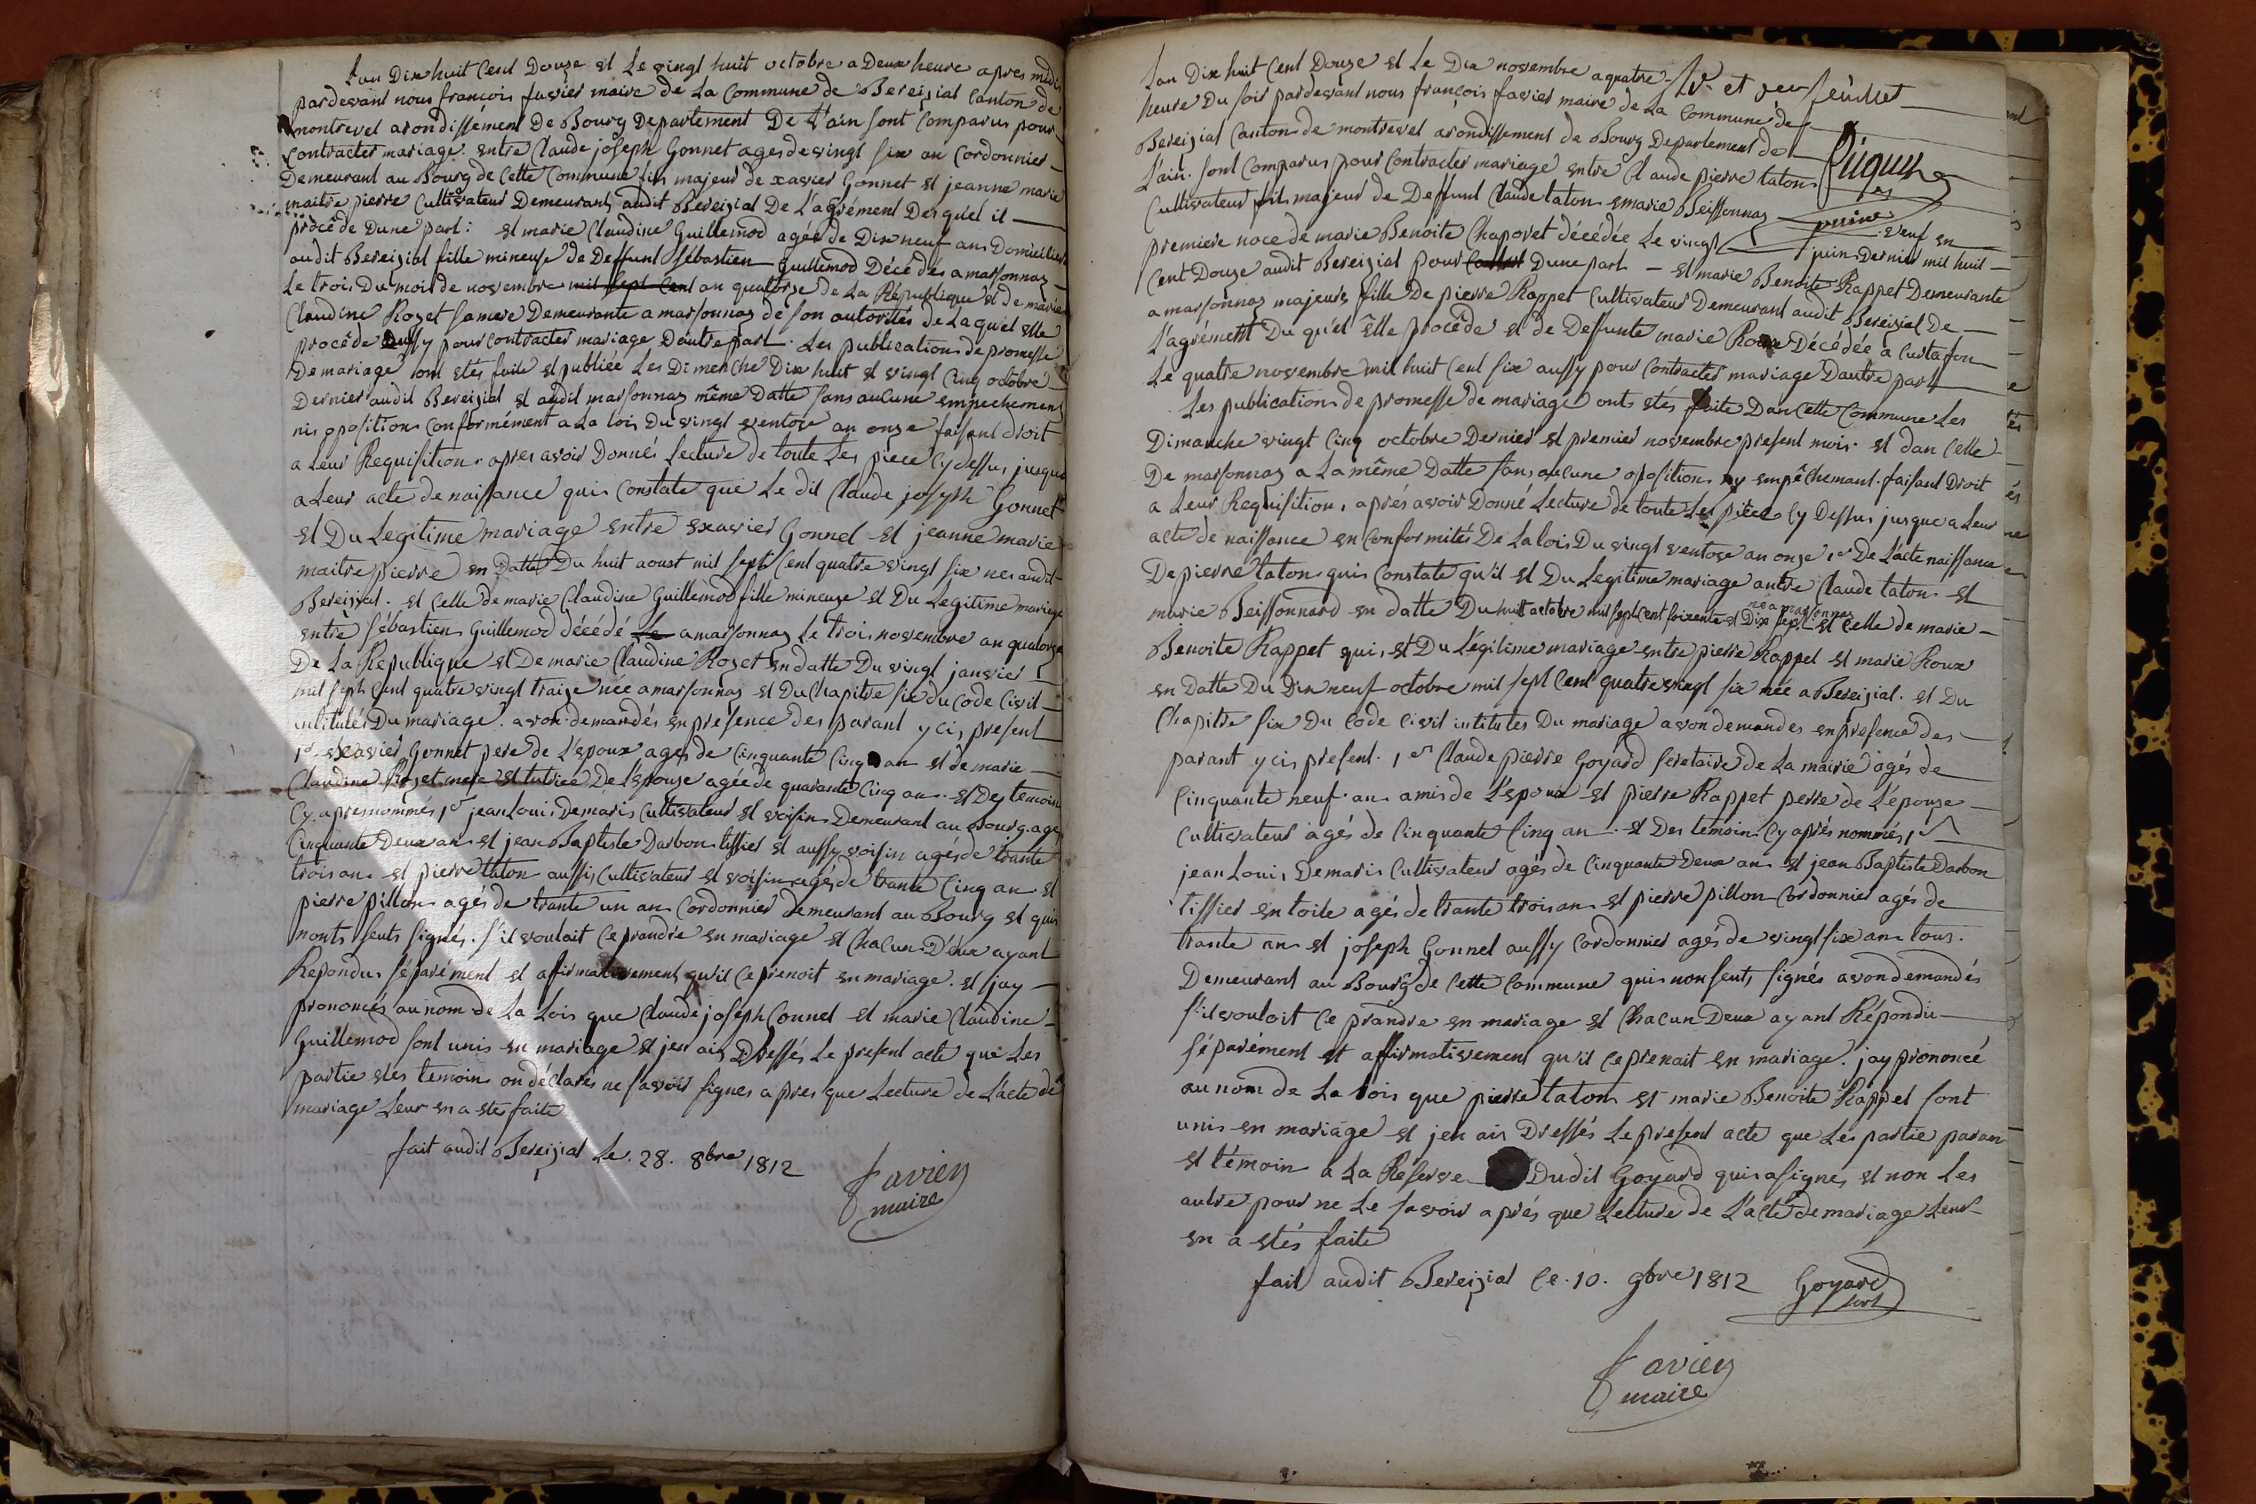 Lan Dix huit Cent Douze et Le vingt huit octobre a Deux heure apres midi
pardevant nous françois favier maire de La Commune de Bereizial Canton de
montrevel arondissement De Bourg Departement De L'ain sont Comparus pour
Contracter mariage. entre Claude joseph Gonnet ages de vingt six an Cordonnier
Demeurant au Bourg de Cette Commune fils majeur de xavier Gonnet et jeanne marie
maitre pierre Cultivateur Demeurants audit Bereizial De L'agrément Desquel il
procéde Dune part : et marie Claudine Guillemod agée de Dix neuf ans Domiciliée
audit Bereizial fille mineuse de Deffunt Sébastien Guillemod Décédés a marsonnaz
Le trois Du mois de novembre mil sept Cent an quatorze de La République et de marie
Claudine Rozet sa mere Demeurante a marsonnaz de son autorités de Laquel elle
procéde aussy pour contracter mariage Dautre part. Les publications de promesse
De mariage ont etés faite et publiée Les Dimenche Dix huit et vingt Cinq octobre
Dernier audit Bereizial et audit marsonnaz même Datte sans aucune empechement
ni oposition Conformément a La lois Du vingt ventose an onze faisant droit
a Leur Requisition. apres avoir Donnés Lecture de toute Les piece Cy dessus jusqua
a Leur acte de naissance qui Constate que Le dit Claude joseph Gonnet
et Du Legitime mariage entre exavier Gonnel et jeanne marie
maitre pierre en Datte Du huit aoust mil sept Cent quatre vingt six nes audit
Bereizial. et Celle de marie Claudine Guillemod fille mineuse et Du Legitime mariage
entre Sébastien Guillemod décédé Le a marsonnaz Le trois novembre an quatorze
De La République et De marie Claudine Rozet en datte Du vingt janvié
mil sept Cent quatre vingt traize née a marsonnaz et Du Chapitre six du Code Civil
intitulés Du mariage. avon demandés en présence des parant y ci present
1er exavier Gonnet pere de L'epoux agés de Cinquante Cinq an et de marie
Claudine Rozet mere et tutrice De L'epouze agée de quarante Cinq an. et Des temoin
Cy apres nommés 1er jean Louis Demaris Cultivateur et voisin Demeurant au Bourg. agés
Cinquante Deux an et jean Baptiste Darbon tissier et aussy voisin agés de trante
trois an et pierre taton aussi Cultivateur et voisin agés de trante Cinq an et
pierre pillon agés de trante un an Cordonnier Demeurant au Bourg et qui
nonts seuts signés. s'il voulait Ce prandre en mariage et Chacun D'eux ayant
Repondu séparément et afirmativement qu'il Ce prenoit en mariage. et jay
prononcés au nom de La Lois que Claude joseph Gonnel et marie Claudine
Guillemod sont unis en mariage et jen ais Dressés Le present acte que Les
partie et es temoin on déclarés ne savoir signes apres que Lecture de L'acte de
mariage Leur en a etés faite
fait audit Bereizial Le. 28. 8bre 1812
favier
maire
Lan Dix huit Cent Douze et Le Dix novembre a quatre
et feuillet
heure Du soir pardevant nous françois favier maire de La Commune de
Bereizial Canton de montrevel arondissement de Bourg Departement de
L'ain. sont Comparus pour Contracter mariage entre Claude pierre taton
Cultivateur fils majeur de Deffunt Claude taton et marie Beissonnaz
veuf en
premiere noce de marie Benoite Chaporet décédée Le vingt juin Dernier mil huit
Cent Douze audit Bereizial pour Dune part - et marie Benoite Rappet Demeurante
a marsonnaz majeure fille De pierre Rappet Cultivateur Demeurant audit Bereizial De
L'agrément Du qu'el Elle procéde et de Deffunte marie Roux Décédée a Curtafon
Le quatre novembre mil huit Cent six aussy pour Contracter mariage Dautre part
Les publication de promesse de mariage ont etés faite Dan Cette Commune Les
Dimanche vingt Cinq octobre Dernier et premier novembre present mois et dan Celle
De marsonnaz a La même Datte sans aucune oposition ny empêchemant. faisant Droit
a Leur Requisition, aprés avoir Donné Lecture de toute Les piéce Cy Dessus jusque a Leur
acte de naissance en Conformités De La lois Du vingt ventose an onze 1er De L'acte naissance
De pierre taton qui Constate qu'il et Du Legitime mariage antre Claude taton et
né a marsonnaz
marie Beissonnard en datte Du huit octobre mil sept Cent soixente et Dix sept et Celle de marie
Benoite Rappet qui, et Du Légitime mariage entre pierre Rappel et marie Roux
en Datte Du Dix neuf octobre mil sept Cent quatre vingt six née a Bereizial. et Du
Chapitre six Du Code Civil intitutes Du mariage avon demandes en presence des
parant y ci present. 1er Claude pierre Goyard secretaire de La mairie agés de
Cinquante neuf an amis de L'epoux et pierre Rappet perre de L'épouze
Cultivateur agés de Cinquante Cinq an. et Des témoin Cy aprés nommés, 1er
jean Louis Demaris Cultivateur agés de Cinquante Deux an et jean Baptiste Darbon
tissier en toile agés de trante trois an et pierre pillon Cordonnier agés de
trante an et joseph Gonnel aussy Cordonnier agés de vingt six an tous.
Demeurant au Bourg de Cette Commune qui non seuts signés avon demandés
s'il vouloit Ce prandre en mariage et Chacun Deux ayant Répondu
séparement et affirmativement qu'il Ce prenait en mariage. jay prononcé
au nom de La Lois que pierre taton et marie Benoite Rappet sont
unis en mariage et jen ais Dressés Le present acte que Les partie paran
et témoin a La Réserve Dudit Goyard qui a signe, et non Les
autre pour ne Le savoir aprés que Lecture de L'acte de mariage Leur
en a etés faite
fait audit Bereizial Ce. 10. 9bre 1812 Goyard
favier
maire